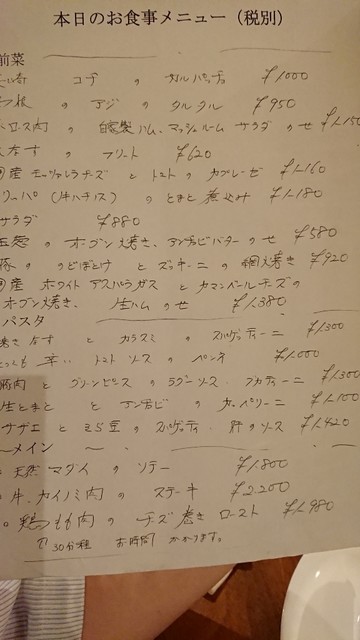 本日のお食事メニュー（税別）
前菜
コチ の カルパッチョ ¥1000
の アジ の タルタル ¥950
ロース肉 の 自家製ハム、マッシュルーム サラダ のせ ¥1,150
なす の フリット ¥620
産 モッツァレラチーズ と トマト の カプレーゼ ¥1,160
リッパ（牛ハチノス）の とまと 煮込み ¥1,180
サラダ ¥880
玉葱 の オーブン焼き、アンチョビバター のせ ¥580
豚 の のどぼとけ と ズッキーニ の 網焼き ¥920
産 ホワイト アスパラガス と カマンベールチーズ の
オーブン焼き、 生ハム のせ ¥1,380
パスタ
焼き なす と カラスミ の スパゲッティーニ ¥1,300
とっても 辛い トマト ソース の ペンネ ¥1,000
豚肉 と グリーンピース の ラグーソース ブカティーニ ¥1,300
生とまと と アンチョビ の カッペリーニ ¥1,100
サザエ と そら豆 の スパゲッティ 肝 の ソース ¥1,420
〜メイン 〜
天然 マダイ の ソテー ¥1,800
牛 カイノミ肉 の ステーキ ¥2,200
鶏もも肉 の チーズ 巻き ロースト ¥1,980
30分程 お時間 かかります。